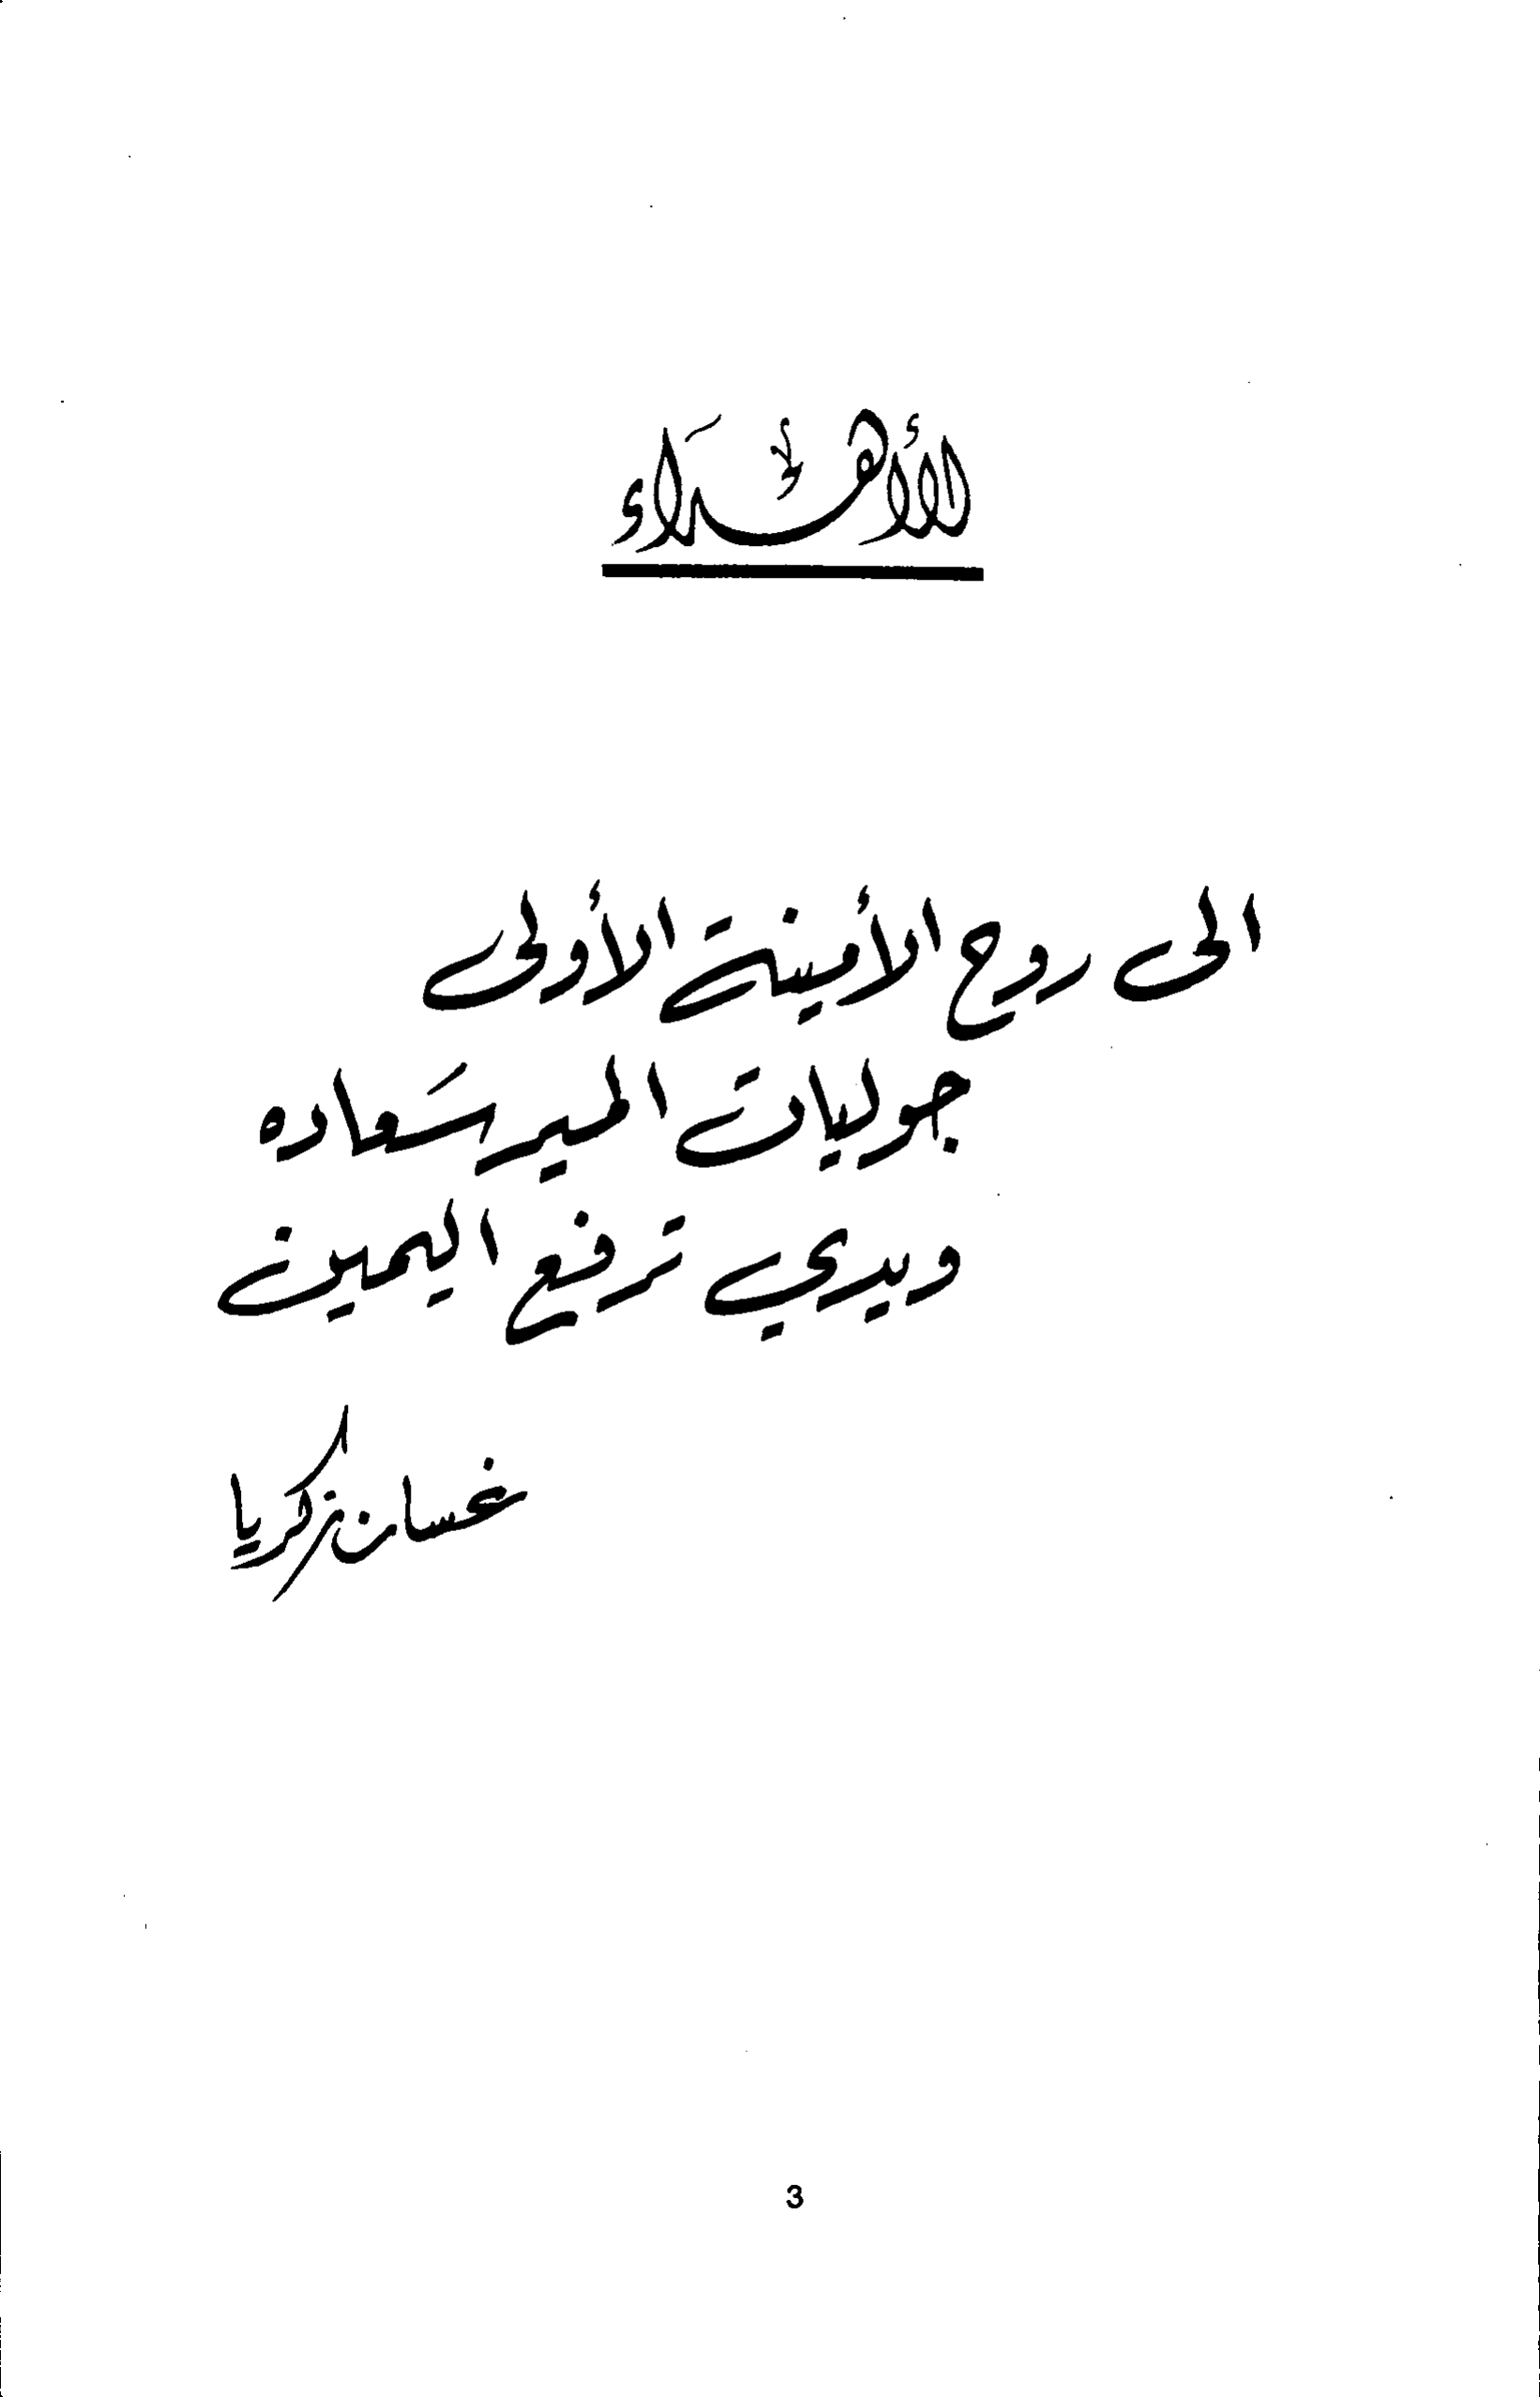 الأهداء
الى روح الأمينة الأولى
جولييات المير سعاده
ويدي ترفع اليمين
غسان زكريا
3